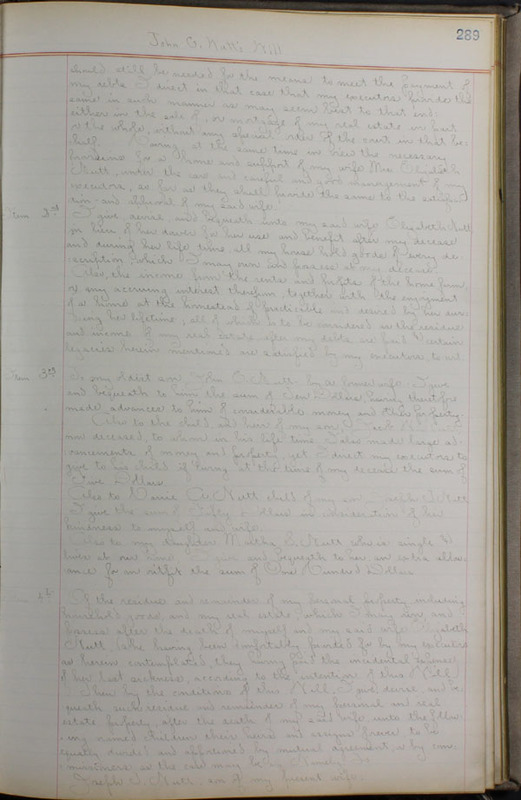 289
John G. Nutt's Will
should still be needed for the means to meet the payment of
my debts I direct in that case that my executors provide the
same in such manner as may seem best to that end;
either in the sale of, or mortgage of my real estate in part
or the whole, without any special order of the court in that be-
half. Having at the same time in view the necessary
provisions for a home and support of my wife Mrs. Elizabeth
Nutt, under the care and careful and good management of my
executors, so far as they shall provide the same to the satisfac-
tion and approval of my said wife.
Item 2nd I give, devise, and bequeath unto my said wife Elizabeth Nutt
in lieu of her dower for her use and benefit after my decease
and during her life time all my house hold goods of every de-
scription which I may own and possess at my decease.
Also, the income from the rents and profits of the home farm
or any accruing interest therefrom, together with the enjoyment
of a home at the homestead if practicable and desired by her dur-
ing her lifetime, all of which is to be considered as the residue
and income of my real estate after my debts are paid & certain
legacies herein mentioned are satisfied by my executors
Item 3rd To my oldest son, John by a former wife I give
and bequeath to him the sum of Dollars, having heretofore
made advances to him of considerable money and other property.
Also to the child, and heir of my son
now deceased, to whom in his life time, I also made large ad-
vancements of money and property, yet, I direct my executors to
give to his child if living at the time of my decease the sum of
Five Dollars
Also to Nutt child of my son Joseph Nutt
I give the sum of Fifty Dollars in consideration of her
kindness to myself and wife.
Also to my daughter Martha Nutt who is single &
lives at our home, I give and bequeath to her an extra allow-
ance for an outfit the sum of One Hundred Dollars
4th Of the residue and remainder of my personal property including
household goods, and my real estate, which I may own, and
possess after the death of myself and my said wife Elizabeth
Nutt (she having been comfortably provided for by my executors
as herein contemplated, they having paid the incidental expenses
of her last sickness, according to the intention of this Will)
Then by the conditions of this Will, I give, devise, and be-
queath such residue and remainder of my personal and real
estate property, after the death of my said wife, unto the follow-
ing named children their heirs and assigns forever to be
equally divided and apportioned by mutual agreement, or by com-
missioners as the case may be by Namely, To
Joseph Nutt, son of my present wife.